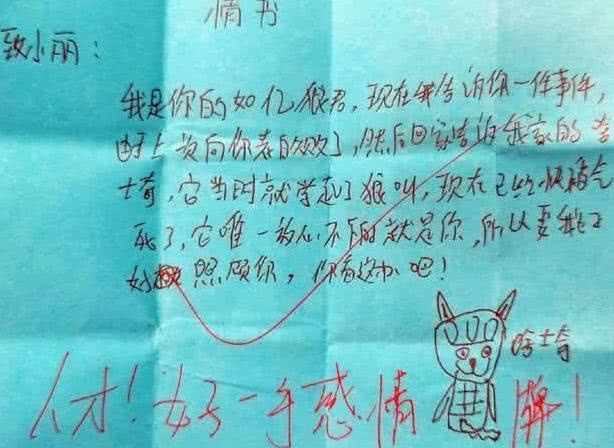 情书
致小丽：
我是你的如亿狼君，现在我告诉你一件事件，
由于上次向你表白失败了，然后回家告诉我家的哈
士奇，它当时就学起了狼叫，现在已经快被气
死了，它唯一放心不下的就是你，所以要我
好 照顾你，你看这办吧！
哈士奇
人才！好一手感情 牌！